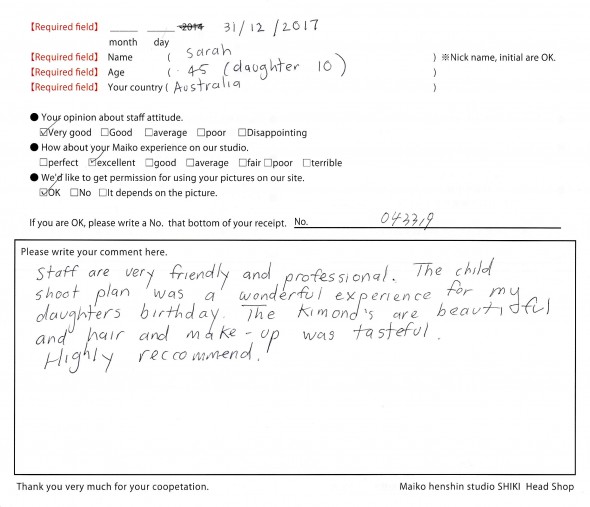 【Required field】 ____ ____ 2014 31/12/2017
month day
【Required field】 Name ( Sarah ) ※Nick name, initial are OK.
【Required field】 Age ( 45 (daughter 10) )
【Required field】 Your country ( Australia )
● Your opinion about staff attitude.
☑Very good □Good □average □poor □Disappointing
● How about your Maiko experience on our studio.
□perfect ☑excellent □good □average □fair □poor □terrible
● We'd like to get permission for using your pictures on our site.
☑OK □No □It depends on the picture.
If you are OK, please write a No. that bottom of your receipt. No. 043319
Please write your comment here.
Staff are very friendly and professional. The child
shoot plan was a wonderful experience for my
daughters birthday. The Kimono's are beautiful
and hair and make-up was tasteful.
Highly reccommend!
Thank you very much for your coopetation. Maiko henshin studio SHIKI Head Shop